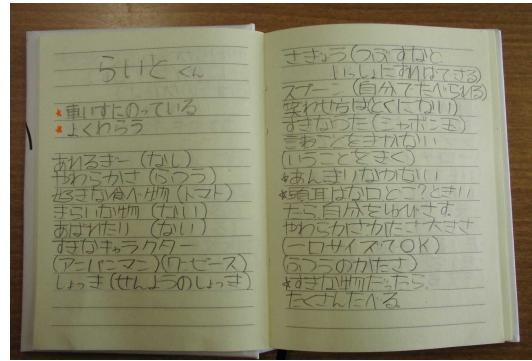 らいとくん
★車いすにのっている
★よくわらう
あれるぎー(なし)
やわらかさ(ふつう)
好きな食べ物(トマト)
きらいな物(ない)
あばれたり(ない)
すきなキャラクター
(アンパンマン)(ワンピース)
しょっき(せんようのしょっき)
さぎょう(つぶすなど
いっしょにすればできる)
スプーン(自分でたべられる)
笑わせ方はとくにない)
すきなうた(シャボン玉)
言うことをきかない
(いうことをきく)
★あんまりなかない
★頭耳はな口どこ?ときい
たら自分をゆびさす
やわらかさかたさ大きさ
(一口サイズでOK)
(ふつうのかたさ)
★すきな物だったら、
たくさんたべる。